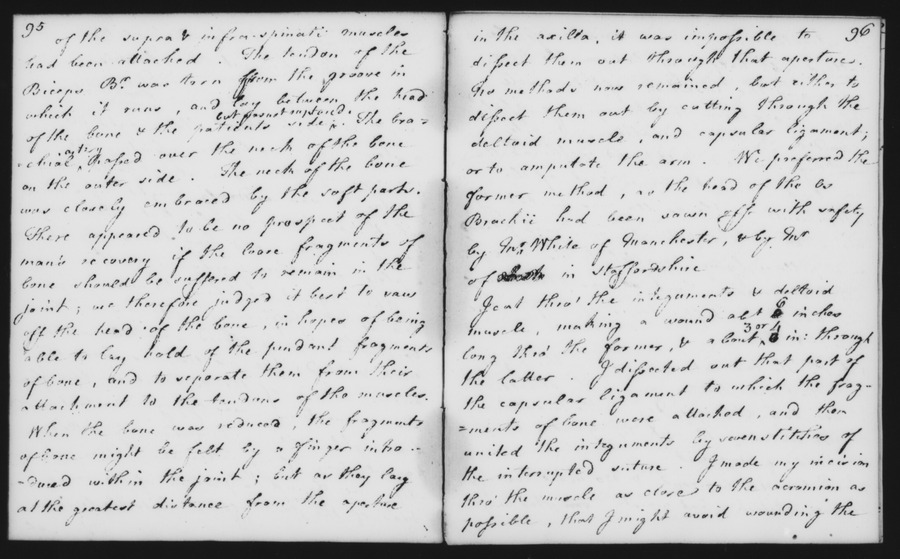 95
of the supra & infra-spinati muscles
had been attached. The tendon of the
Biceps Br. was torn from the groove in
which it runs, and lay between the head
but was not ruptured.
of the bone & the patients side. The bra=
artery
=chial passed over the neck of the bone
on the outer side. The neck of the bone
was closely embraced by the soft parts.
There appeared to be no prospect of the
man's recovery if the loose fragments of
bone should be suffered to remain in the
joint; we therefore judged it best to saw
off the head of the bone, in hopes of being
able to lay hold of the pendant fragments
of bone, and to separate them from their
attachment to the tendons of the muscles.
When the bone was reduced, the fragments
of bone might be felt by a finger intro-
-duced within the joint; but as they lay
at the greatest distance from the aperture
96
in the axilla, it was impossible to
dissect them out through that aperture.
No methods now remained, but either to
dissect them out by cutting through the
deltoid muscle, and capsular ligament;
or to amputate the arm. We preferred the
former method, as the head of the Os
Brachii had been sawn off with safety
by Mr. White of Manchester, & by Mr
of in Staffordshire
I cut thro' the integuments & deltoid
muscle, making a wound abt 6 inches
3 or 4
long thro' the former, & about in: through
the latter. I dissected out that part of
the capsular ligament to which the frag-
=ments of bone were attached, and then
united the integuments by seven stitches of
the interrupted suture. I made my incision
thro' the muscle as close to the acromion as
possible, that I might avoid wounding the